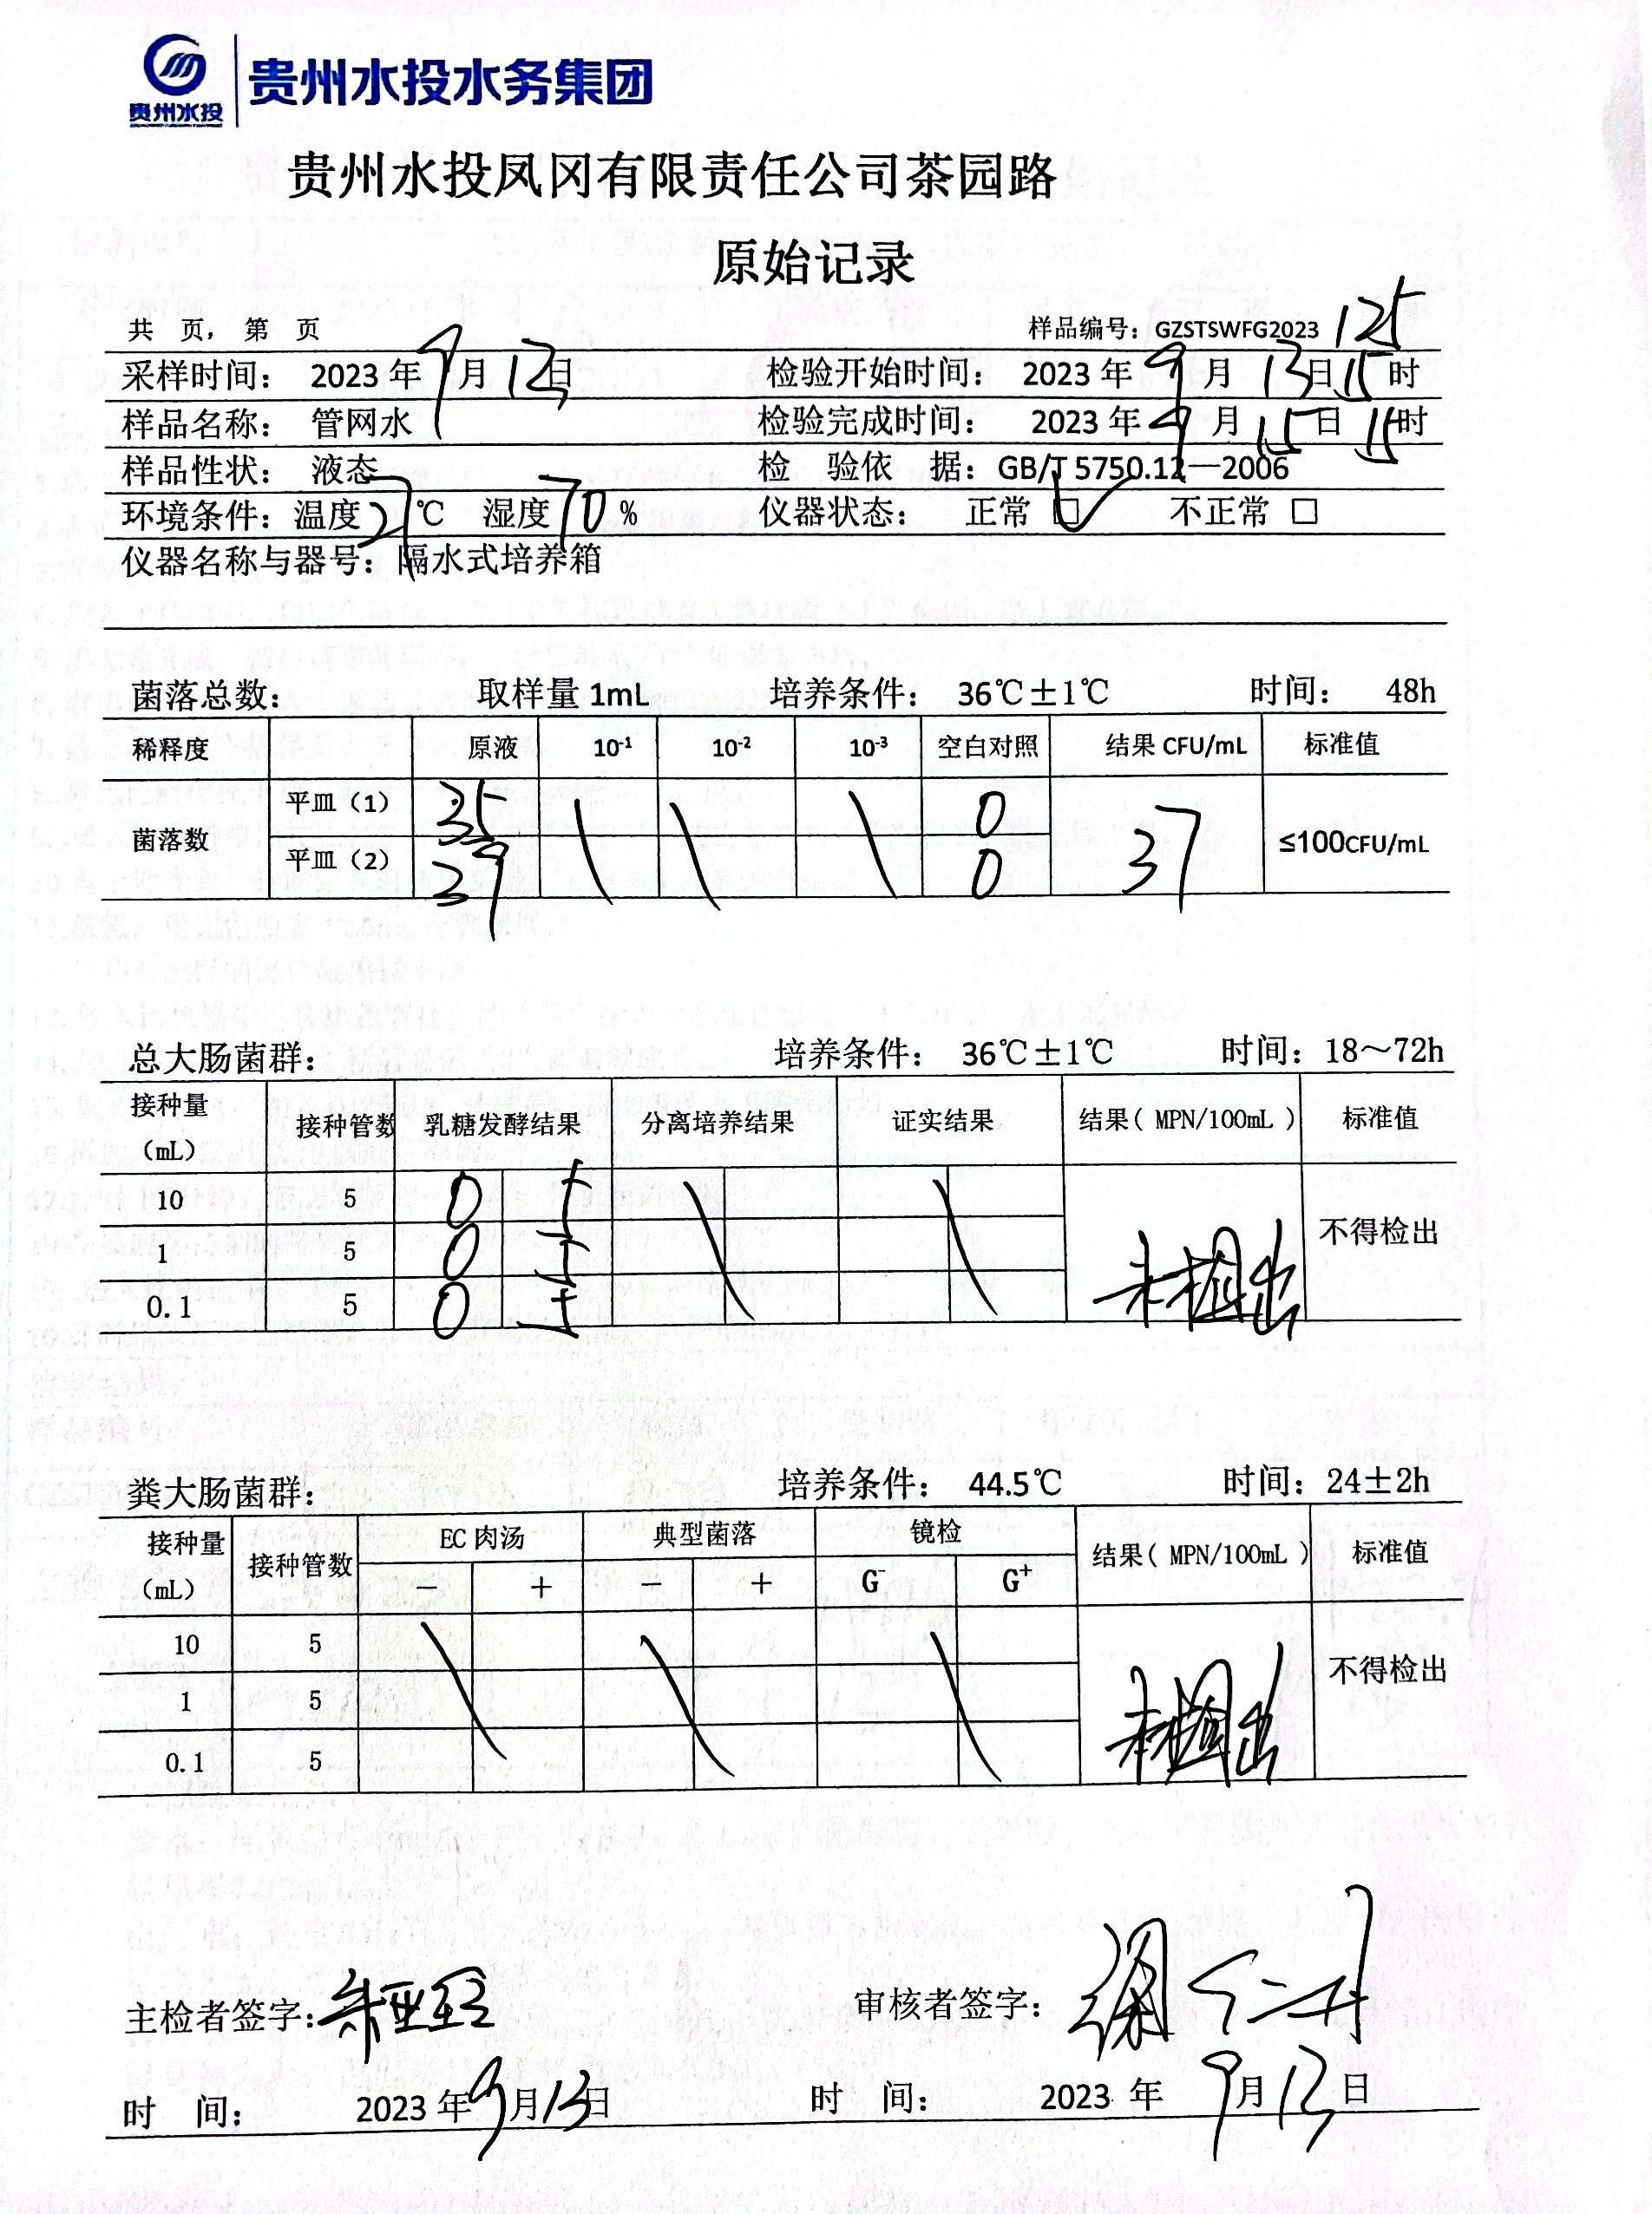 贵州水投 贵州水投水务集团
贵州水投凤冈有限责任公司茶园路
原始记录
共 页， 第 页 样品编号：GZSTSWFG2023 125
采样时间： 2023 年 9 月 13 日 检验开始时间： 2023 年 9 月 13 日 15 时
样品名称： 管网水 检验完成时间： 2023 年 9 月 15 日 15 时
样品性状： 液态 检 验依 据：GB/T 5750.12—2006
环境条件：温度 27 ℃ 湿度 70 % 仪器状态： 正常 ☑ 不正常 □
仪器名称与器号：隔水式培养箱
菌落总数： 取样量 1mL 培养条件： 36℃±1℃ 时间： 48h
稀释度 原液 10⁻¹ 10⁻² 10⁻³ 空白对照 结果 CFU/mL 标准值
菌落数 平皿（1） 35 \ \ \ 0 37 ≤100CFU/mL
平皿（2） 39 0
总大肠菌群： 培养条件： 36℃±1℃ 时间：18～72h
接种量（mL） 接种管数 乳糖发酵结果 分离培养结果 证实结果 结果（ MPN/100mL ） 标准值
10 5 0 5 \ \ 未检出 不得检出
1 5 0 5
0.1 5 0 5
粪大肠菌群： 培养条件： 44.5℃ 时间：24±2h
接种量（mL） 接种管数 EC 肉汤 典型菌落 镜检 结果（ MPN/100mL ） 标准值
— + — + G⁻ G⁺
10 5 \ \ \ 未检出 不得检出
1 5
0.1 5
主检者签字： 审核者签字：
时 间： 2023 年 9 月 13 日 时 间： 2023 年 9 月 13 日